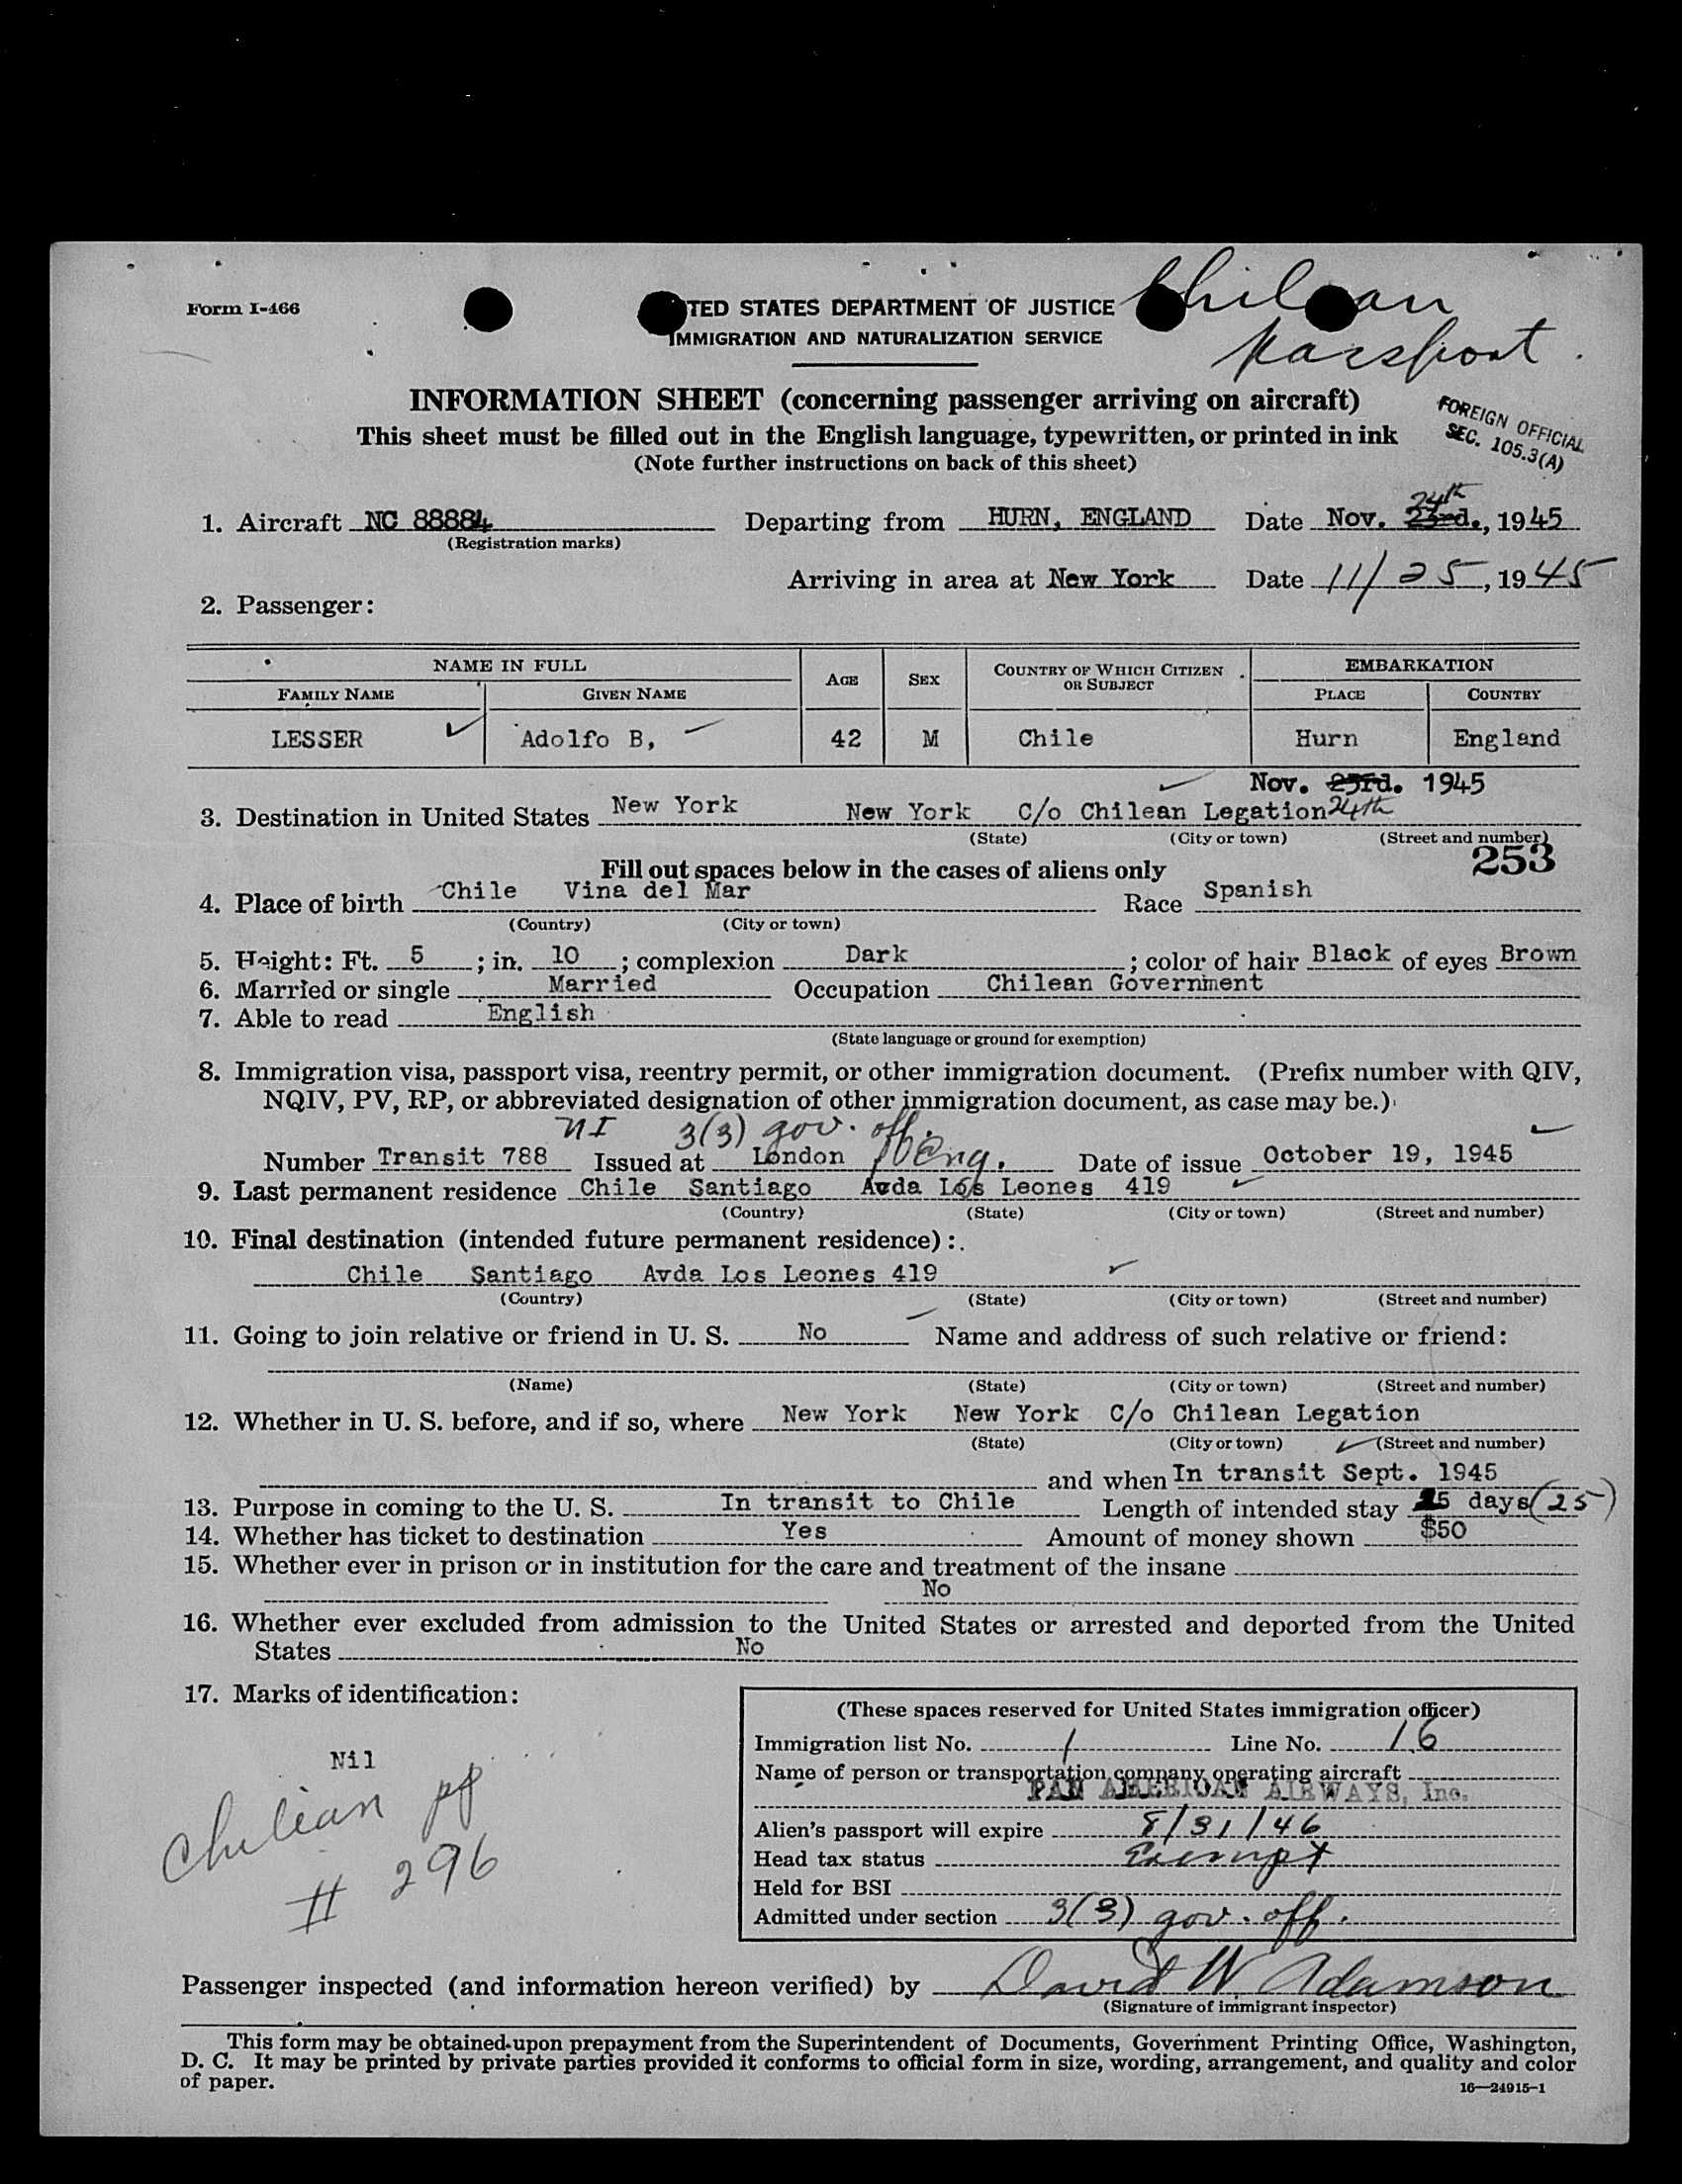 Form I-466
TED STATES DEPARTMENT OF JUSTICE
IMMIGRATION AND NATURALIZATION SERVICE
Chilean
Passport.
INFORMATION SHEET (concerning passenger arriving on aircraft)
This sheet must be filled out in the English language, typewritten, or printed in ink
(Note further instructions on back of this sheet)
FOREIGN OFFICIAL
SEC. 105.3(A)
24th
1. Aircraft NC 88884 Departing from HURN, ENGLAND Date Nov. 23rd., 1945
(Registration marks)
Arriving in area at New York Date 11/25, 1945
2. Passenger:
NAME IN FULL AGE SEX COUNTRY OF WHICH CITIZEN OR SUBJECT EMBARKATION
FAMILY NAME GIVEN NAME PLACE COUNTRY
LESSER Adolfo B, 42 M Chile Hurn England
Nov. 23rd. 1945
3. Destination in United States New York New York C/o Chilean Legation 24th
(State) (City or town) (Street and number)
253
Fill out spaces below in the cases of aliens only
4. Place of birth Chile Vina del Mar Race Spanish
(Country) (City or town)
5. Height: Ft. 5; in. 10; complexion Dark; color of hair Black of eyes Brown
6. Married or single Married Occupation Chilean Government
7. Able to read English
(State language or ground for exemption)
8. Immigration visa, passport visa, reentry permit, or other immigration document. (Prefix number with QIV,
NQIV, PV, RP, or abbreviated designation of other immigration document, as case may be.)
NI 3(3) gov. off.
Number Transit 788 Issued at London Eng. Date of issue October 19, 1945
9. Last permanent residence Chile Santiago Avda Los Leones 419
(Country) (State) (City or town) (Street and number)
10. Final destination (intended future permanent residence):
Chile Santiago Avda Los Leones 419
(Country) (State) (City or town) (Street and number)
11. Going to join relative or friend in U. S. No Name and address of such relative or friend:
(Name) (State) (City or town) (Street and number)
12. Whether in U. S. before, and if so, where New York New York C/o Chilean Legation
(State) (City or town) (Street and number)
and when In transit Sept. 1945
13. Purpose in coming to the U. S. In transit to Chile Length of intended stay 25 days (25)
14. Whether has ticket to destination Yes Amount of money shown $50
15. Whether ever in prison or in institution for the care and treatment of the insane
No
16. Whether ever excluded from admission to the United States or arrested and deported from the United
States No
17. Marks of identification:
Nil
Chilean pp
# 296
(These spaces reserved for United States immigration officer)
Immigration list No. 1 Line No. 16
Name of person or transportation company operating aircraft
PAN AMERICAN AIRWAYS, Inc.
Alien's passport will expire 8/31/46
Head tax status Exempt
Held for BSI
Admitted under section 3(3) gov. off.
Passenger inspected (and information hereon verified) by David W. Adamson
(Signature of immigrant inspector)
This form may be obtained upon prepayment from the Superintendent of Documents, Government Printing Office, Washington,
D. C. It may be printed by private parties provided it conforms to official form in size, wording, arrangement, and quality and color
of paper.
16—24915-1